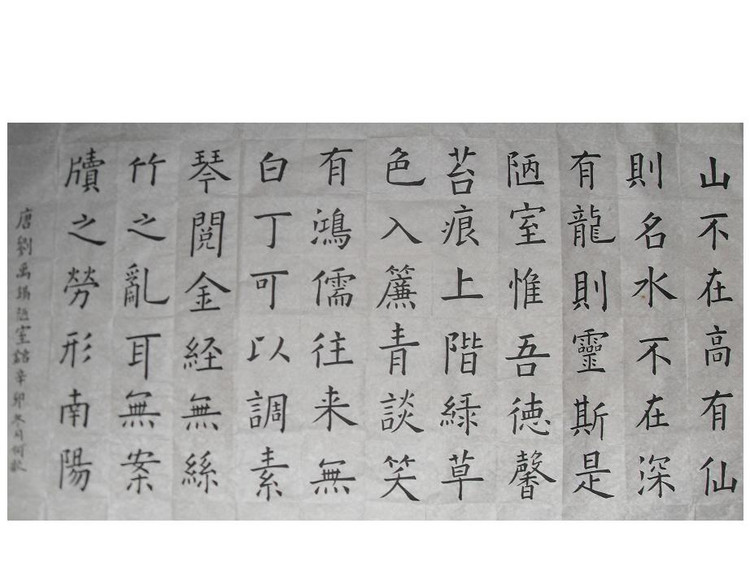 山不在高有仙
則名水不在深
有龍則靈斯是
陋室惟吾德馨
苔痕上階緑草
色入簾青談笑
有鴻儒往来無
白丁可以調素
琴閲金経無絲
竹之亂耳無案
牘之勞形南陽
唐劉禹錫陋室銘辛卯冬月